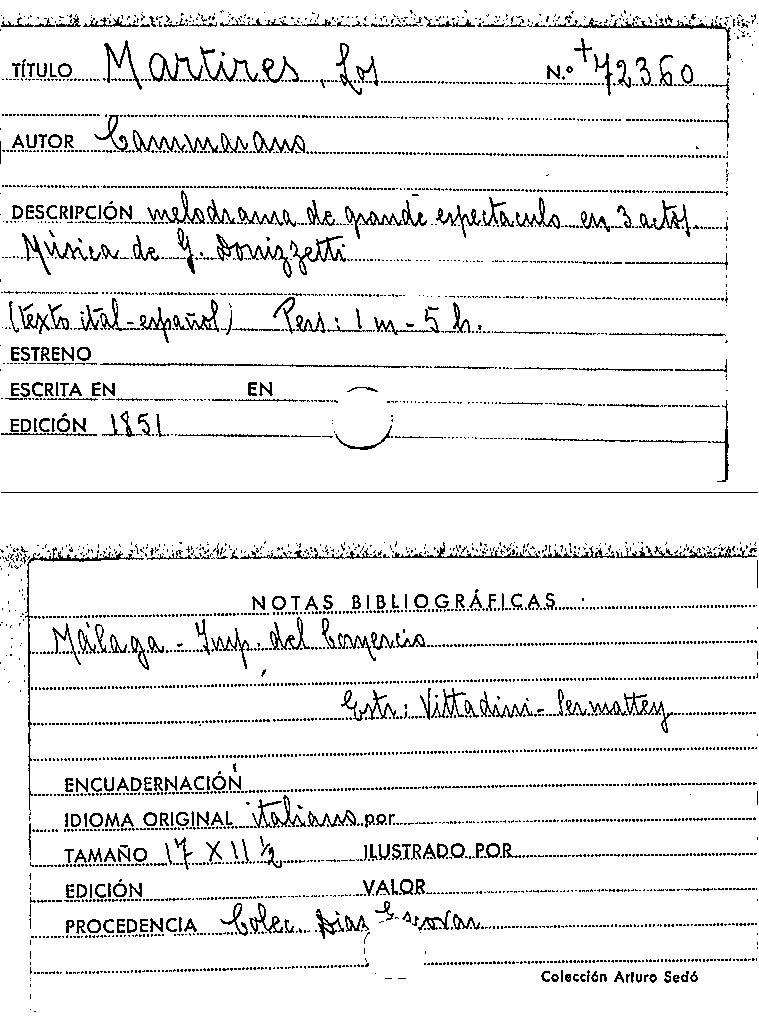 TÍTULO Martires, Los N.º +72360
AUTOR Cammarano
DESCRIPCIÓN melodrama de grande espectaculo en 3 actos.
Música de G. Donizzetti
(texto ital-español) Pers: 1 m - 5 h.
ESTRENO
ESCRITA EN EN
EDICIÓN 1851
NOTAS BIBLIOGRÁFICAS
Málaga - Imp. del Comercio
Estr: Vittadini - Sermattey
ENCUADERNACIÓN
IDIOMA ORIGINAL italiano por
TAMAÑO 17 X 11 ½ ILUSTRADO POR
EDICIÓN VALOR
PROCEDENCIA Colec. Dias Escovar
Colección Arturo Sedó